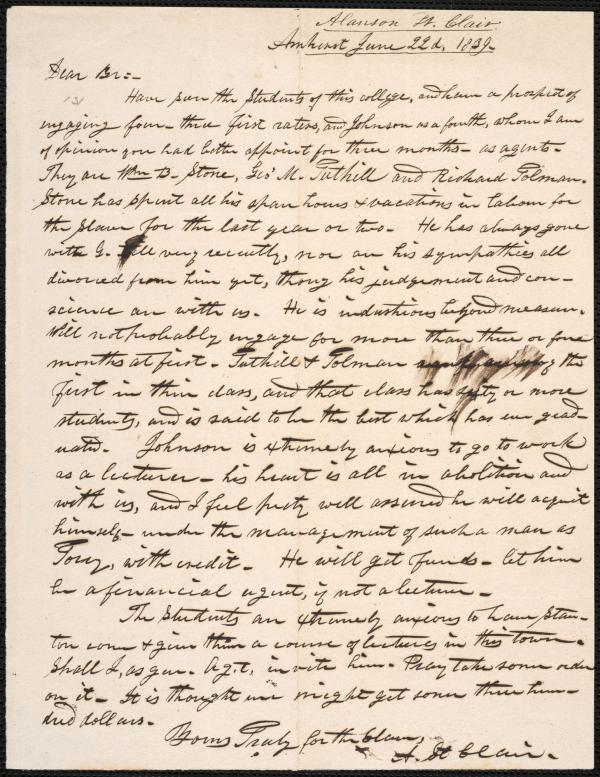 Alanson St. Clair
Amherst June 22d, 1839.
Dear Br:-
Have seen the students of this college, and have a prospect of
engaging four - three first raters, and Johnson as a fourth, whom I am
of opinion you had both appoint for three months - as agents -
They are Wm B. Stone, Geo. M. Tuthill and Richard Tolman.
Stone has spent all his spare hours & vacations in labour for
the slave for the last year or two. He has always gone
with G. till very recently, nor are his sympathies all
divorced from him yet, though his judgement and con-
science are with us. He is industrious beyond measure.
Will not probably engage for more than three or four
months at first. Tuthill & Tolman the
first in their class, and that class has sixty or more
students, and is said to be the best which has ever grad-
uated. Johnson is extremely anxious to go to work
as a lecturer - his heart is all in abolition and
with us, and I feel pretty well assured he will acquit
himself - under the management of such a man as
Torrey, with credit. He will get funds - let him
be a financial agent, if not a lecturer -
The students are extremely anxious to have Stan-
ton come & give them a course of lectures in this town -
Shall I, as gen. Agt, invite him. Pray take some order
on it - It is thought we might get some three hun-
dred dollars -
Yours Truly for the slave,
A. St Clair -